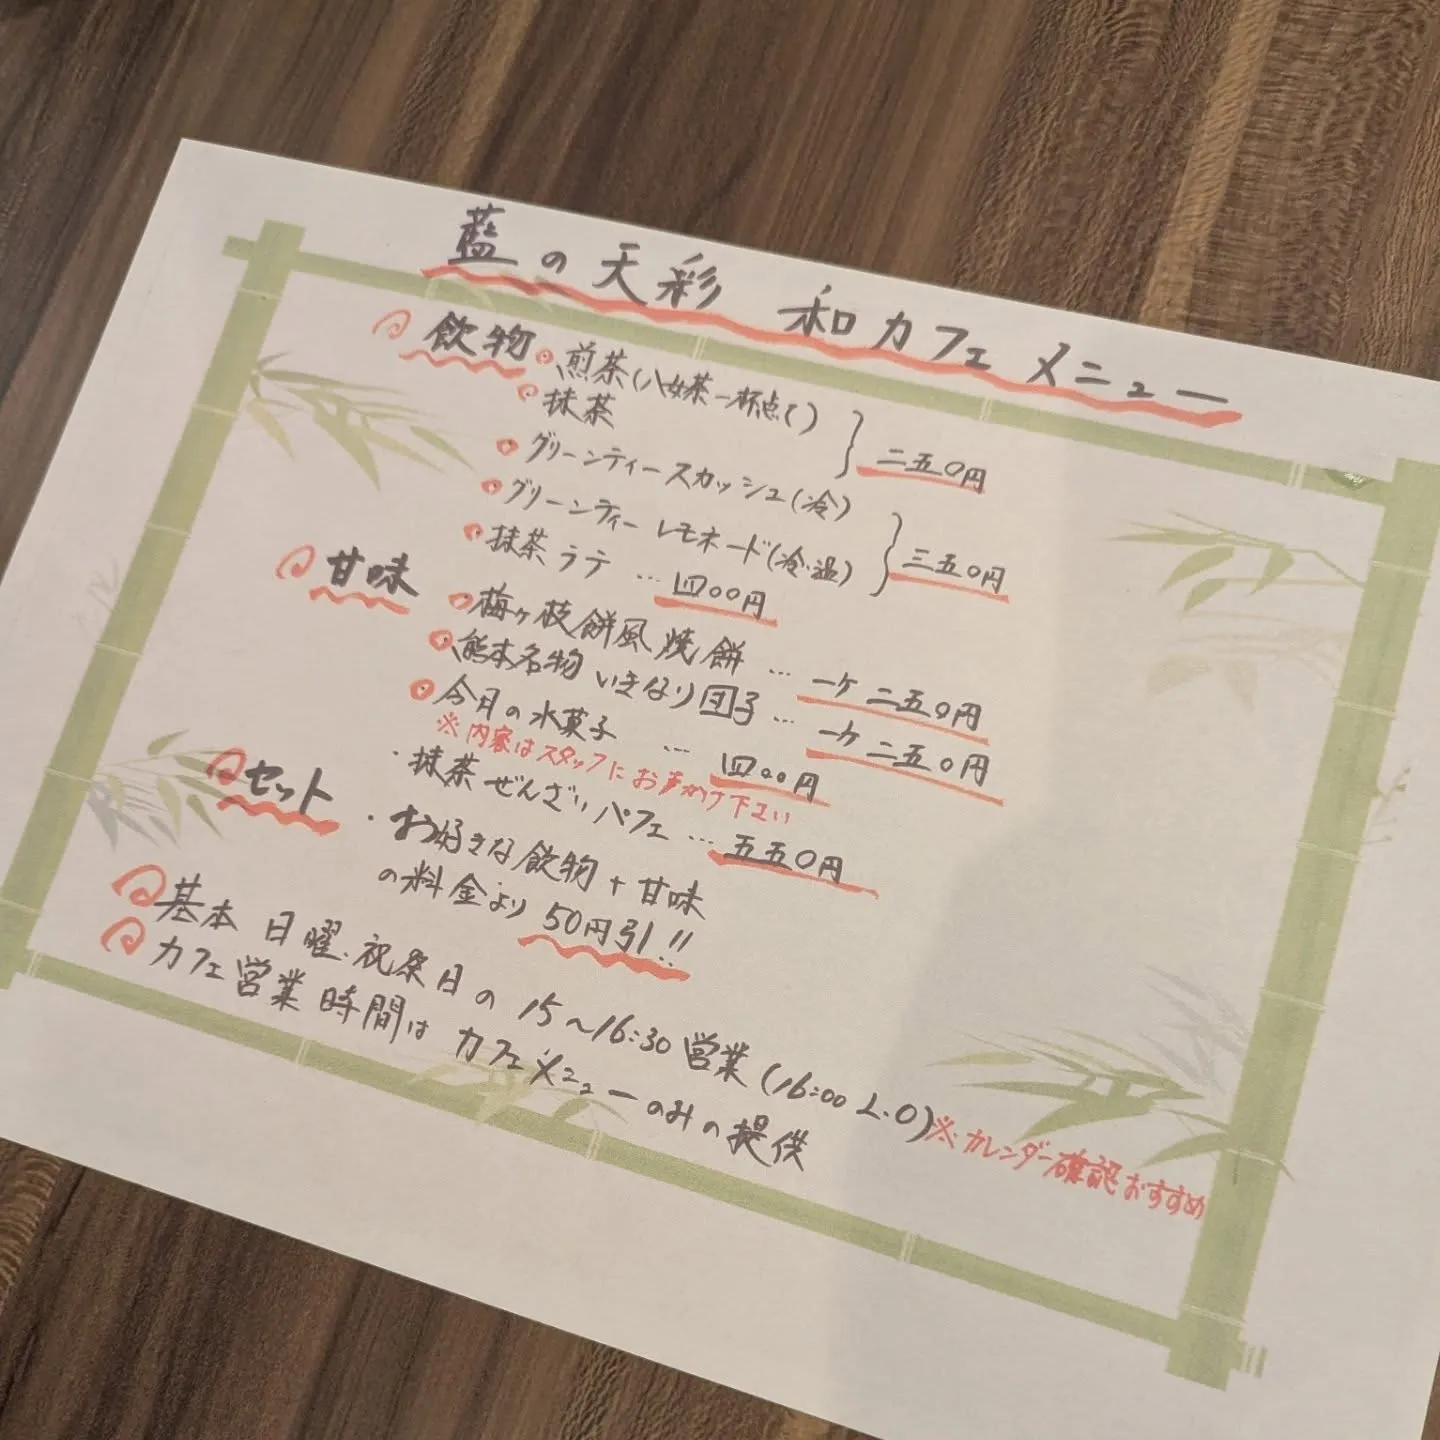 藍の天彩 和カフェメニュー
飲物 煎茶(八女茶一杯点て)
抹茶 } 二五〇円
グリーンティースカッシュ(冷)
グリーンティーレモネード(冷・温) } 三五〇円
抹茶ラテ … 四〇〇円
甘味 梅ヶ枝餅風焼餅 … 一ケ 二五〇円
熊本名物 いきなり団子 … 一ケ 二五〇円
今月の水菓子 … 四〇〇円
※内容はスタッフにお声かけ下さい
・抹茶ぜんざいパフェ … 五五〇円
セット ・お好きな飲物+甘味
の料金より 50円引!!
基本 日曜、祝祭日の 15~16:30 営業 (16:00 L.O) ※カレンダー確認おすすめ
カフェ営業時間は カフェメニューのみの提供